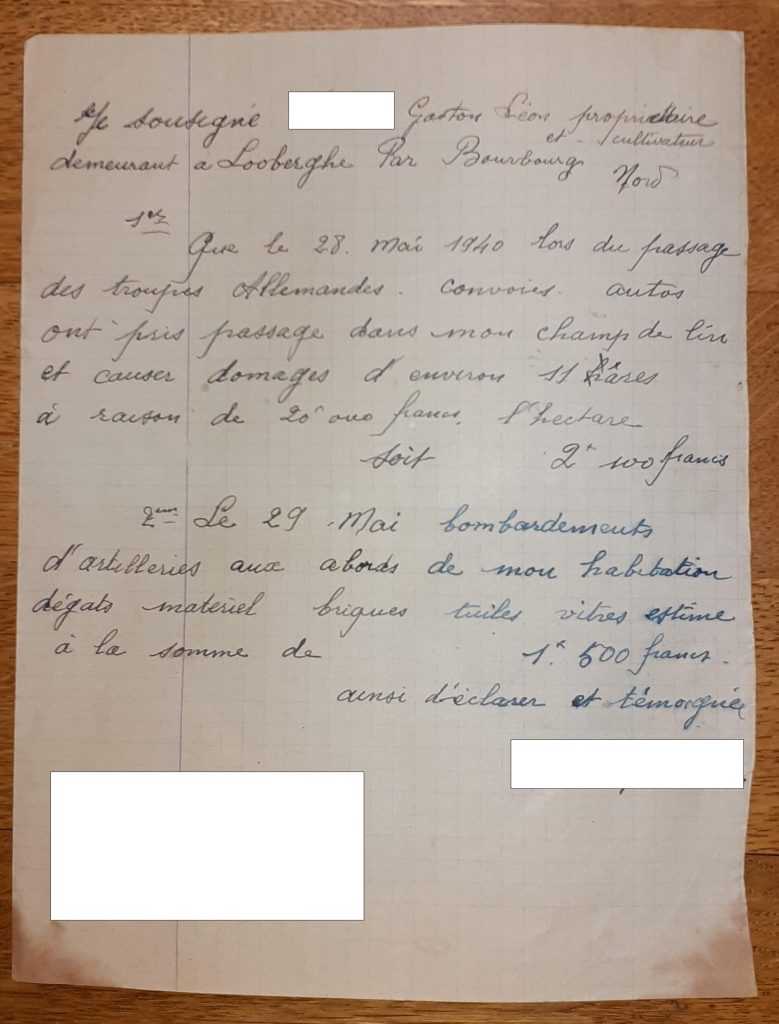 Je sousigné Gaston Léon propriettaire
et cultivateur
demeurant a Looberghe Par Bourbourg
Nord
1er
Que le 28. Mai 1940 lors du passage
des troupes Allemandes. convoies. autos
ont pris passage dans mon champ de lin
et causer domages d'environ 11 âres
à raison de 20 000 francs. l'hectare
soit 2 100 francs
2em Le 29 Mai bombardements
d'artilleries aux abords de mon habitation
dégats matériel briques tuiles vitres estime
à la somme de 1. 500 francs.
ainsi d'éclarer et témoigné